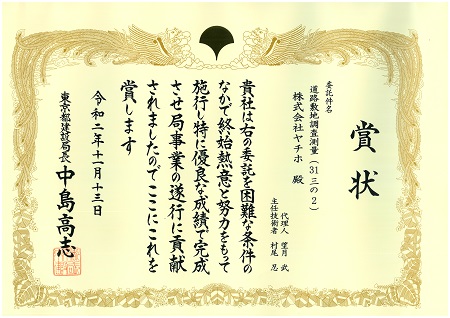 賞状
委託件名
道路敷地調査測量（31三の2）
株式会社ヤチホ 殿
代理人 望月 武
主任技術者 村尾 忍
貴社は右の委託を困難な条件の
なかで終始熱意と努力をもって
施行し特に優良な成績で完成
させ局事業の遂行に貢献
されましたのでここにこれを
賞します
令和二年十一月十三日
東京都建設局長 中島高志